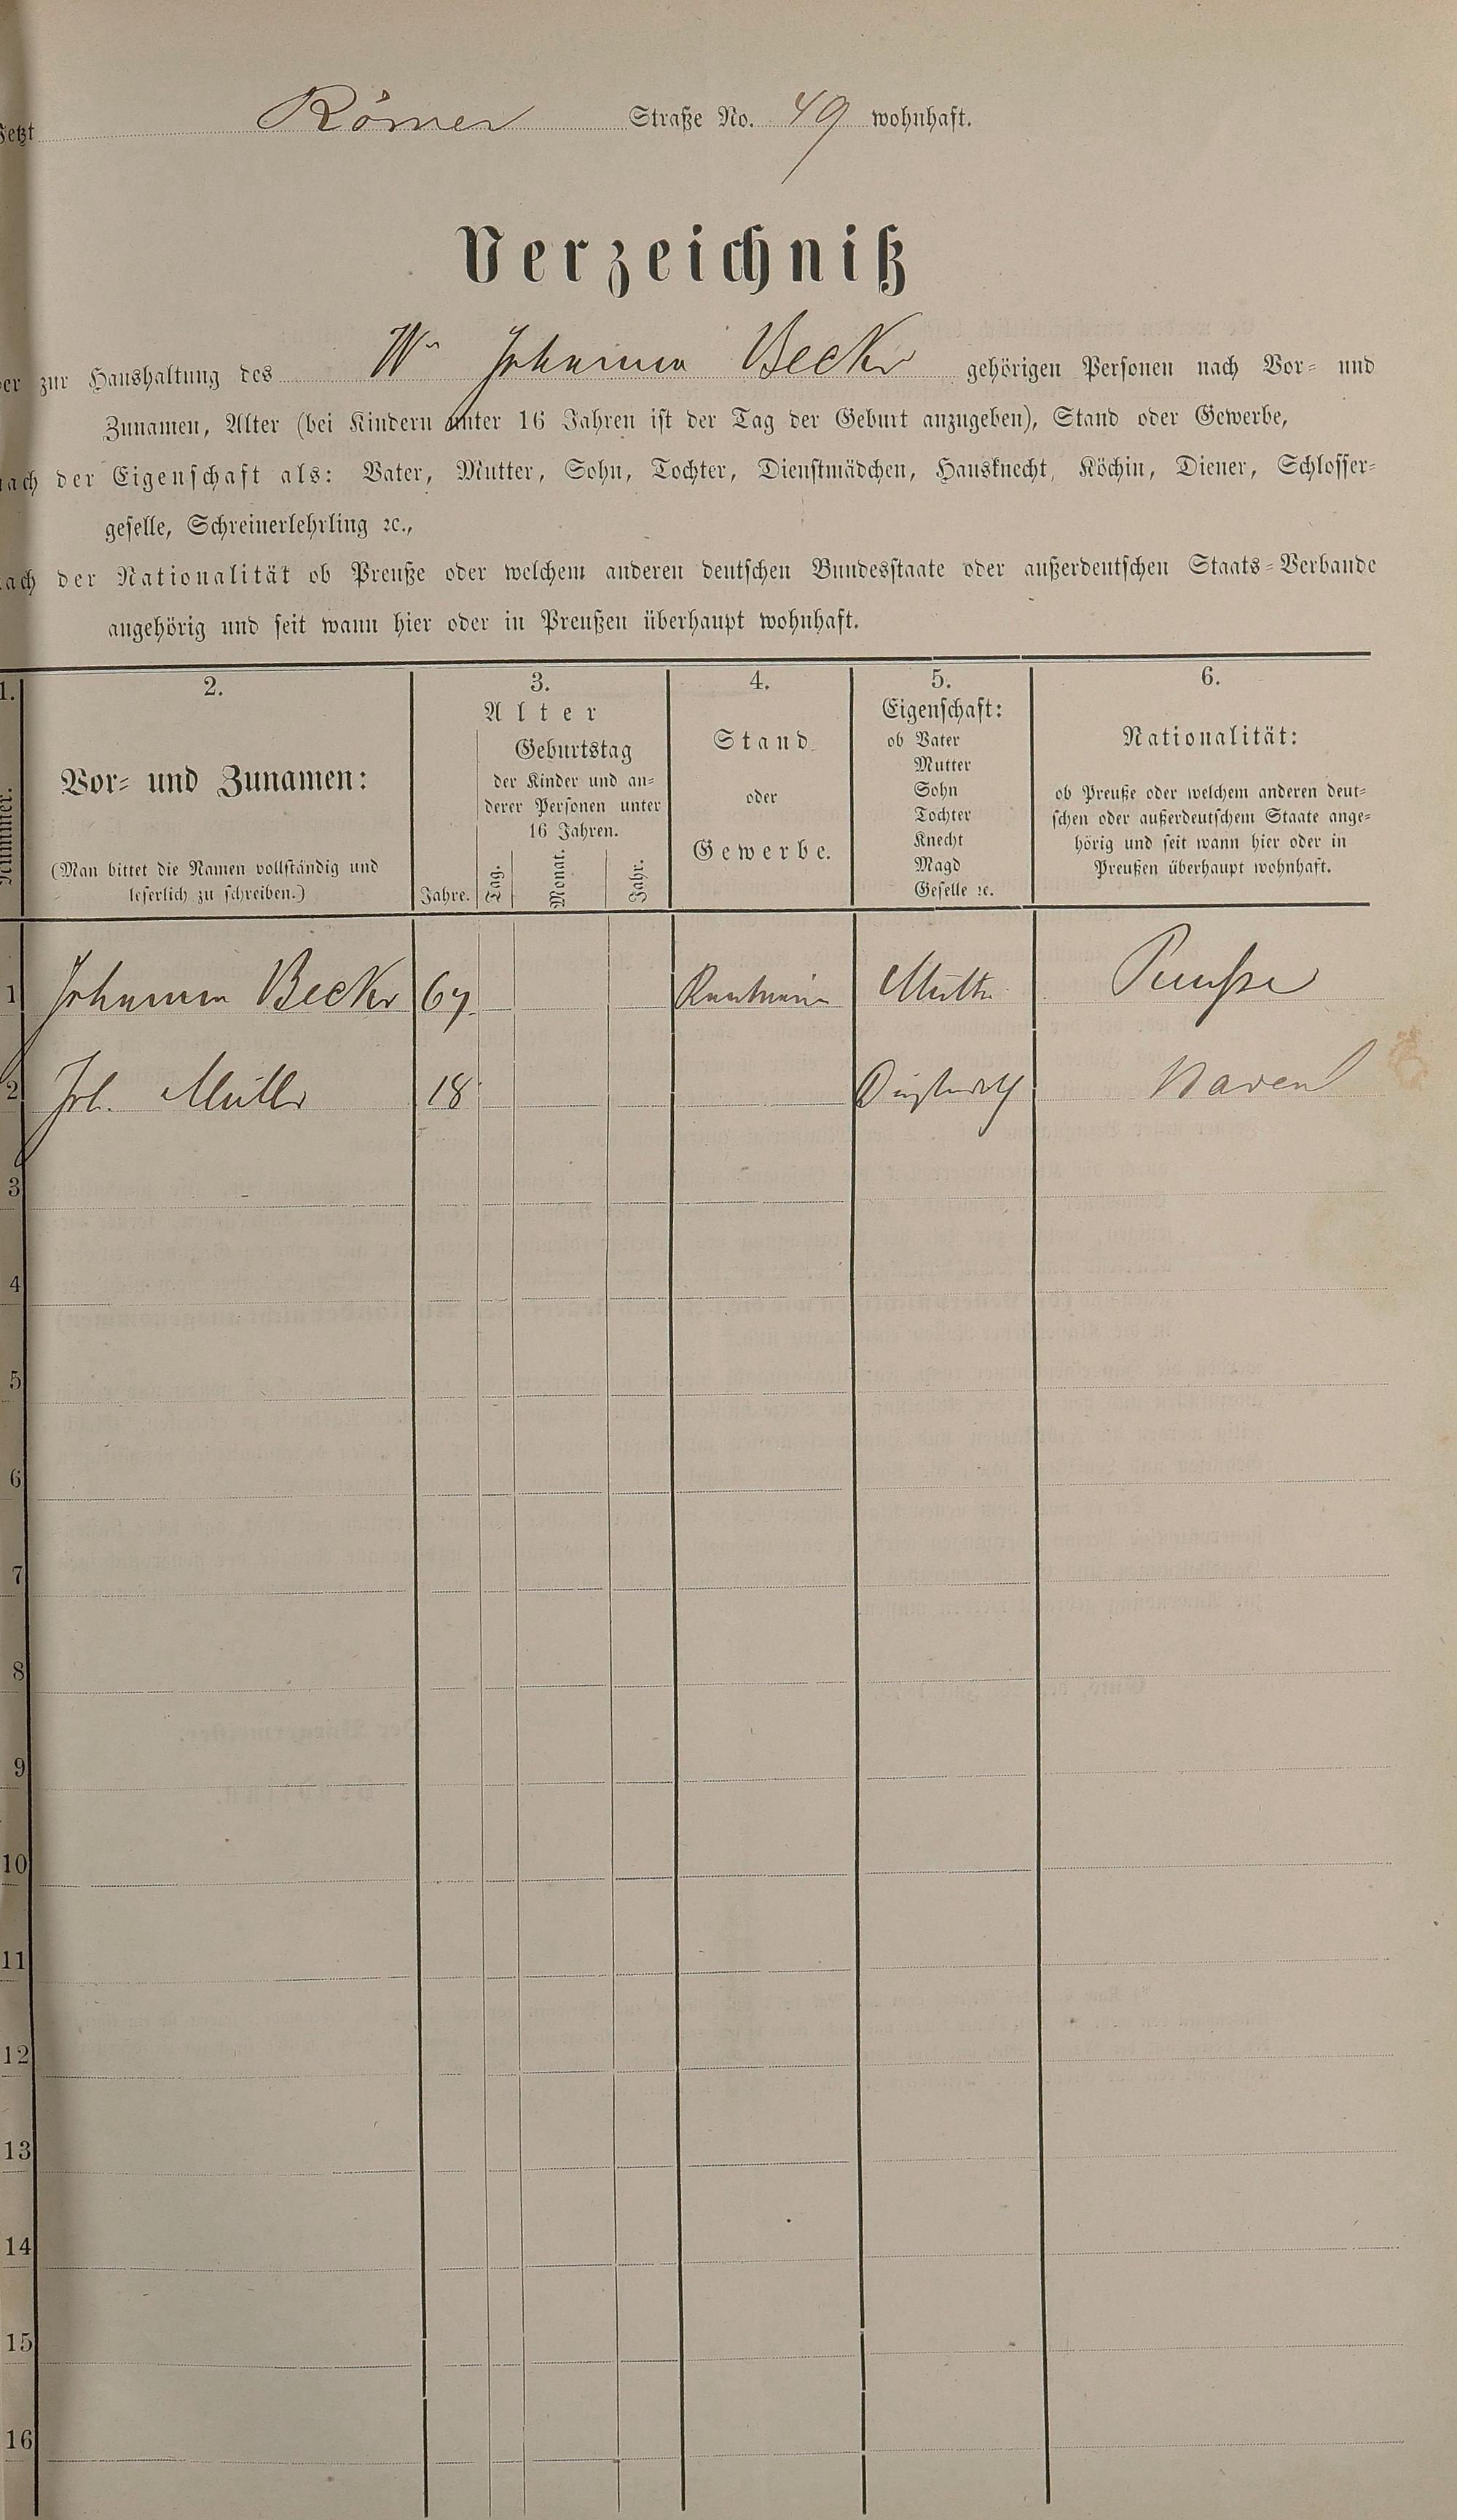 Jetzt Römer Straße No. 49 wohnhaft.
Verzeichniß
der zur Haushaltung des Wwe Johanna Becker gehörigen Personen nach Vor- und
Zunamen, Alter (bei Kindern unter 16 Jahren ist der Tag der Geburt anzugeben), Stand oder Gewerbe,
nach der Eigenschaft als: Vater, Mutter, Sohn, Tochter, Dienstmädchen, Hausknecht, Köchin, Diener, Schlosser-
geselle, Schreinerlehrling ꝛc.,
nach der Nationalität ob Preuße oder welchem anderen deutschen Bundesstaate oder außerdeutschen Staats-Verbande
angehörig und seit wann hier oder in Preußen überhaupt wohnhaft.
1. 2. 3. 4. 5. 6.
Nummer.
Vor- und Zunamen:
(Man bittet die Namen vollständig und
leserlich zu schreiben.)
Alter
Jahre.
Geburtstag
der Kinder und an-
derer Personen unter
16 Jahren.
Tag. Monat. Jahr.
Stand
oder
Gewerbe.
Eigenschaft:
ob Vater
Mutter
Sohn
Tochter
Knecht
Magd
Geselle ꝛc.
Nationalität:
ob Preuße oder welchem anderen deut-
schen oder außerdeutschem Staate ange-
hörig und seit wann hier oder in
Preußen überhaupt wohnhaft.
1 Johanna Becker 67 Rentnerin Mutter Preußen
2 Joh. Müller 18 Baven
3
4
5
6
7
8
9
10
11
12
13
14
15
16